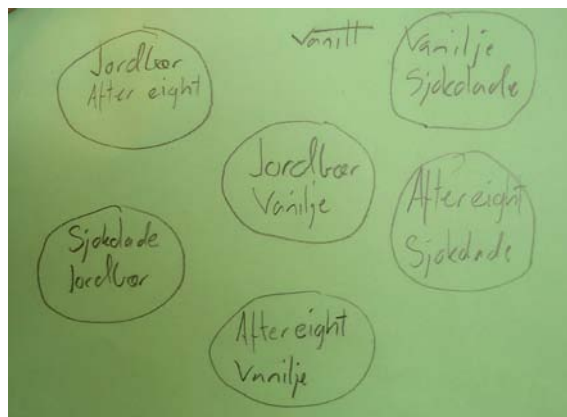 Jordbær
After eight
Vanill
Vanilje
Sjokolade
Jordbær
Vanilje
After eight
Sjokolade
Sjokolade
Jordbær
After eight
Vanilje